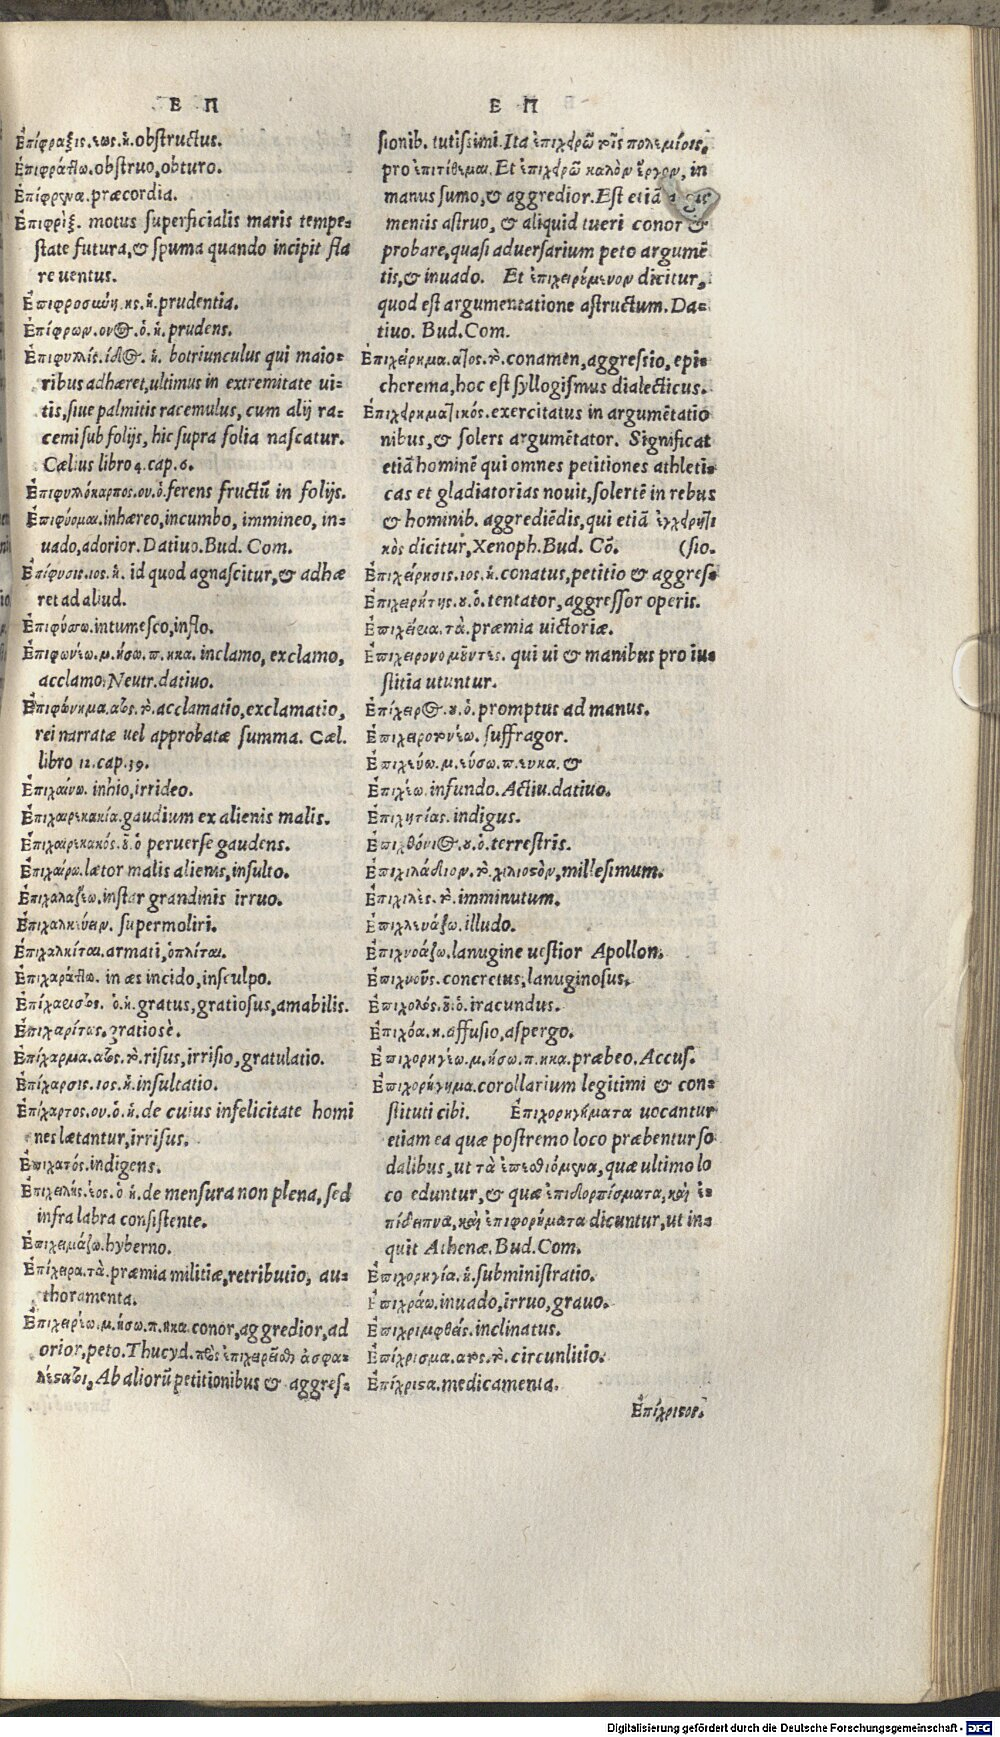 Ε Π
Ἐπίφραξις.εως.ἡ.obstructus.
Ἐπιφράττω.obstruo,obturo.
Ἐπίφρενα.præcordia.
Ἐπιφρὶξ. motus superficialis maris tempe-
state futura,& spuma quando incipit fla
re uentus.
Ἐπιφροσύνη.ης.ἡ.prudentia.
Ἐπίφρων.ονος.ὁ.ἡ.prudens.
Ἐπιφυλλίς.ίδος. ἡ. botriunculus qui maio-
ribus adhæret,ultimus in extremitate ui-
tis,siue palmitis racemulus, cum alij ra-
cemi sub folijs, hic supra folia nascatur.
Cælius libro 4.cap.6.
Ἐπιφυλλόκαρπος.ου.ὁ.ferens fructũ in folijs.
Ἐπιφύομαι.inhæreo,incumbo, immineo, in-
uado,adorior.Datiuo.Bud. Com.
Ἐπίφυσις.ιος.ἡ. id quod agnascitur,& adhæ
ret ad aliud.
Ἐπιφύσω.intumesco,inflo.
Ἐπιφωνέω.μ.ήσω.π.ηκα. inclamo, exclamo,
acclamo.Neutr.datiuo.
Ἐπιφώνημα.ατος.τὸ.acclamatio,exclamatio,
rei narratæ uel approbatæ summa. Cæl.
libro 12.cap.19.
Ἐπιχαίνω. inhio,irrideo.
Ἐπιχαιρεκακία.gaudium ex alienis malis.
Ἐπιχαιρεκακός.οῦ.ὁ peruerse gaudens.
Ἐπιχαίρω.lætor malis alienis,insulto.
Ἐπιχαλαζέω.instar grandinis irruo.
Ἐπιχαλκεύειν. supermoliri.
Ἐπιχαλκίται.armati,ὁπλίται.
Ἐπιχαράττω. in æs incido,insculpo.
Ἐπίχαριστος. ὁ.ἡ.gratus,gratiosus,amabilis.
Ἐπιχαρίτως.gratiosè.
Ἐπίχαρμα.ατος.τὸ.risus,irrisio,gratulatio.
Ἐπίχαρσις.ιος.ἡ.insultatio.
Ἐπίχαρτος.ου.ὁ.ἡ.de cuius infelicitate homi
nes lætantur,irrisus.
Ἐπιχατός.indigens.
Ἐπιχειλής.έος.ὁ ἡ.de mensura non plena, sed
infra labra consistente.
Ἐπιχειμάζω.hyberno.
Ἐπίχειρα.τὰ.præmia militiæ,retributio, au-
thoramenta.
Ἐπιχειρέω.μ.ήσω.π.ηκα.conor,aggredior,ad
orior,peto.Thucyd.πῶς ἐπιχειρεῖσθαι ἀσφα-
λέστατοι, Ab aliorũ petitionibus & aggres-
Ε Π
sionib. tutissimi.Ita ἐπιχειρῶ τοῖς πολεμίοις,
pro ἐπιτίθεμαι.Et ἐπιχειρῶ καλὸν ἔργον, in
manus sumo,& aggredior.Est etiã
mentis astruo, & aliquid tueri conor &
probare,quasi aduersarium peto argumẽ
tis,& inuado. Et ἐπιχειρούμενον dicitur,
quod est argumentatione astructum. Da-
tiuo. Bud.Com.
Ἐπιχείρημα.ατος.τὸ.conamen,aggressio,epi-
cherema,hoc est syllogismus dialecticus.
Ἐπιχειρηματικός.exercitatus in argumẽtatio
nibus,& solers argumẽtator. Significat
etiã hominẽ qui omnes petitiones athleti-
cas et gladiatorias nouit,solertẽ in rebus
& hominib. aggrediẽdis,qui etiã ἐγχειρητι
κὸς dicitur,Xenoph.Bud. Cõ. (sio.
Ἐπιχείρησις.ιος.ἡ.conatus,petitio & aggres-
Ἐπιχειρητής.ου.ὁ.tentator,aggressor operis.
Ἐπιχείρια.τὰ.præmia uictoriæ.
Ἐπιχειρονομοῦντες. qui ui & manibus pro iu-
stitia utuntur.
Ἐπίχειρος.ου.ὁ.promptus ad manus.
Ἐπιχειροτονέω. suffragor.
Ἐπιχεύω.μ.εύσω.π.ευκα.&
Ἐπιχέω.infundo.Actiu.datiuo.
Ἐπιχητίας.indigus.
Ἐπιχθόνιος.ου.ὁ.terrestris.
Ἐπιχιλάδιον.τὸ.χιλιοστὸν,millesimum.
Ἐπιχιλὲς.τὸ.imminutum.
Ἐπιχλευάζω.illudo.
Ἐπιχνοάζω.lanugine uestior Apollon.
Ἐπιχνοῦς.concretus,lanuginosus.
Ἐπιχολός.οῦ.ὁ.iracundus.
Ἐπιχόα.η.affusio,aspergo.
Ἐπιχορηγέω.μ.ήσω.π.ηκα.præbeo.Accus.
Ἐπιχορήγημα.corollarium legitimi & con-
stituti cibi. Ἐπιχορηγήματα uocantur
etiam ea quæ postremo loco præbentur so
dalibus,ut τὰ ἐπεσθιόμενα,quæ ultimo lo
co eduntur,& quæ ἐπιδορπίσματα,καὶ ἐ-
πίδειπνα,καὶ ἐπιφορήματα dicuntur,ut in-
quit Athenæ.Bud.Com.
Ἐπιχορηγία.ἡ.subministratio.
Ἐπιχράω.inuado,irruo,grauo.
Ἐπιχριμφθείς.inclinatus.
Ἐπίχρισμα.ατος.τὸ.circunlitio.
Ἐπίχριστα.medicamenta.
Ἐπίχριστος.
Digitalisierung gefördert durch die Deutsche Forschungsgemeinschaft - DFG